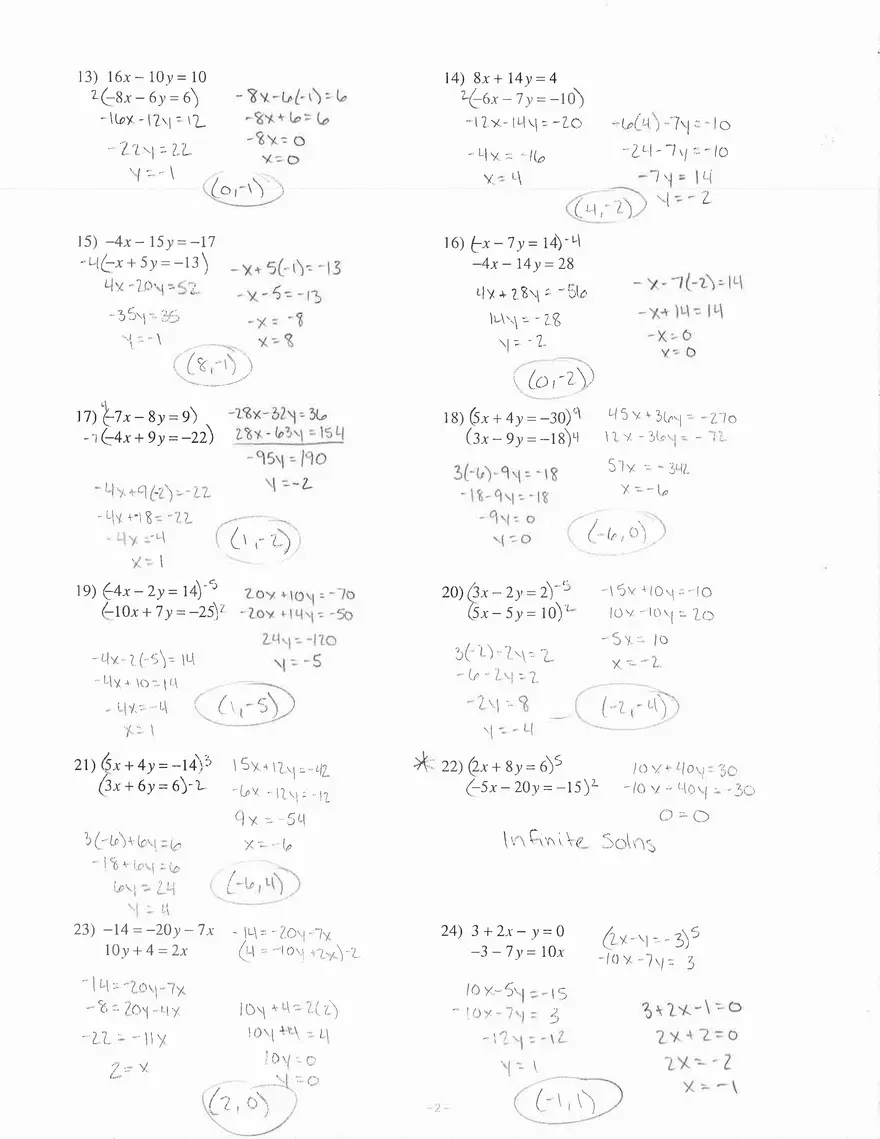 13) 16x − 10y = 10
2(−8x − 6y = 6)
-16x - 12y = 12
-22y = 22
y = -1
-8x - 6(-1) = 6
-8x + 6 = 6
-8x = 0
x = 0
(0,-1)
14) 8x + 14y = 4
2(−6x − 7y = −10)
-12x - 14y = -20
-4x = -16
x = 4
-6(4) - 7y = -10
-24 - 7y = -10
-7y = 14
y = -2
(4,-2)
15) −4x − 15y = −17
-4(−x + 5y = −13)
4x - 20y = 52
-35y = 35
y = -1
-x + 5(-1) = -13
-x - 5 = -13
-x = -8
x = 8
(8,-1)
16) (−x − 7y = 14) -4
−4x − 14y = 28
4x + 28y = -56
14y = -28
y = -2
-x - 7(-2) = 14
-x + 14 = 14
-x = 0
x = 0
(0,-2)
17) 4(−7x − 8y = 9)
-7(−4x + 9y = −22)
-28x - 32y = 36
28x - 63y = 154
-95y = 190
y = -2
-4x + 9(-2) = -22
-4x + -18 = -22
-4x = -4
x = 1
(1,-2)
18) (5x + 4y = −30)9
(3x − 9y = −18)4
45x + 36y = -270
12x - 36y = -72
57x = -342
x = -6
3(-6) - 9y = -18
-18 - 9y = -18
-9y = 0
y = 0
(-6,0)
19) (−4x − 2y = 14)-5
(−10x + 7y = −25)2
20x + 10y = -70
-20x + 14y = -50
24y = -120
y = -5
-4x - 2(-5) = 14
-4x + 10 = 14
-4x = -4
x = 1
(1,-5)
20) (3x − 2y = 2)-5
(5x − 5y = 10)2
-15x + 10y = -10
10x - 10y = 20
-5x = 10
x = -2
3(-2) - 2y = 2
-6 - 2y = 2
-2y = 8
y = -4
(-2,-4)
21) (5x + 4y = −14)3
(3x + 6y = 6)-2
15x + 12y = -42
-6x - 12y = -12
9x = -54
x = -6
3(-6) + 6y = 6
-18 + 6y = 6
6y = 24
y = 4
(-6,4)
* 22) (2x + 8y = 6)5
(−5x − 20y = −15)2
10x + 40y = 30
-10x - 40y = -30
0 = 0
Infinite Solns
23) −14 = −20y − 7x
10y + 4 = 2x
-14 = -20y - 7x
(4 = -10y + 2x)-2
-14 = -20y - 7x
-8 = 20y - 4x
-22 = -11x
2 = x
10y + 4 = 2(2)
10y + 4 = 4
10y = 0
y = 0
(2,0)
24) 3 + 2x − y = 0
−3 − 7y = 10x
(2x - y = -3)5
-10x - 7y = 3
10x - 5y = -15
-10x - 7y = 3
-12y = -12
y = 1
3 + 2x - 1 = 0
2x + 2 = 0
2x = -2
x = -1
(-1,1)
-2-